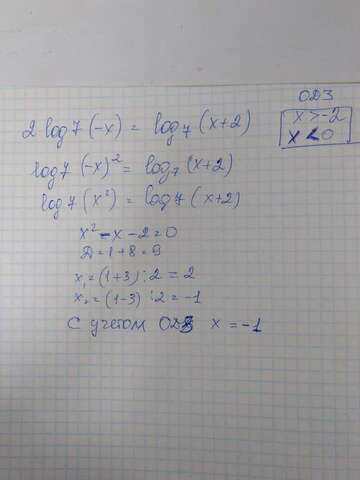 ОДЗ
x > -2
x < 0
2 log 7 (-x) = log₇ (x+2)
log 7 (-x)² = log₇ (x+2)
log 7 (x²) = log 7 (x+2)
x² - x - 2 = 0
Д = 1 + 8 = 9
x₁ = (1+3) : 2 = 2
x₂ = (1-3) : 2 = -1
С учетом ОДЗ x = -1